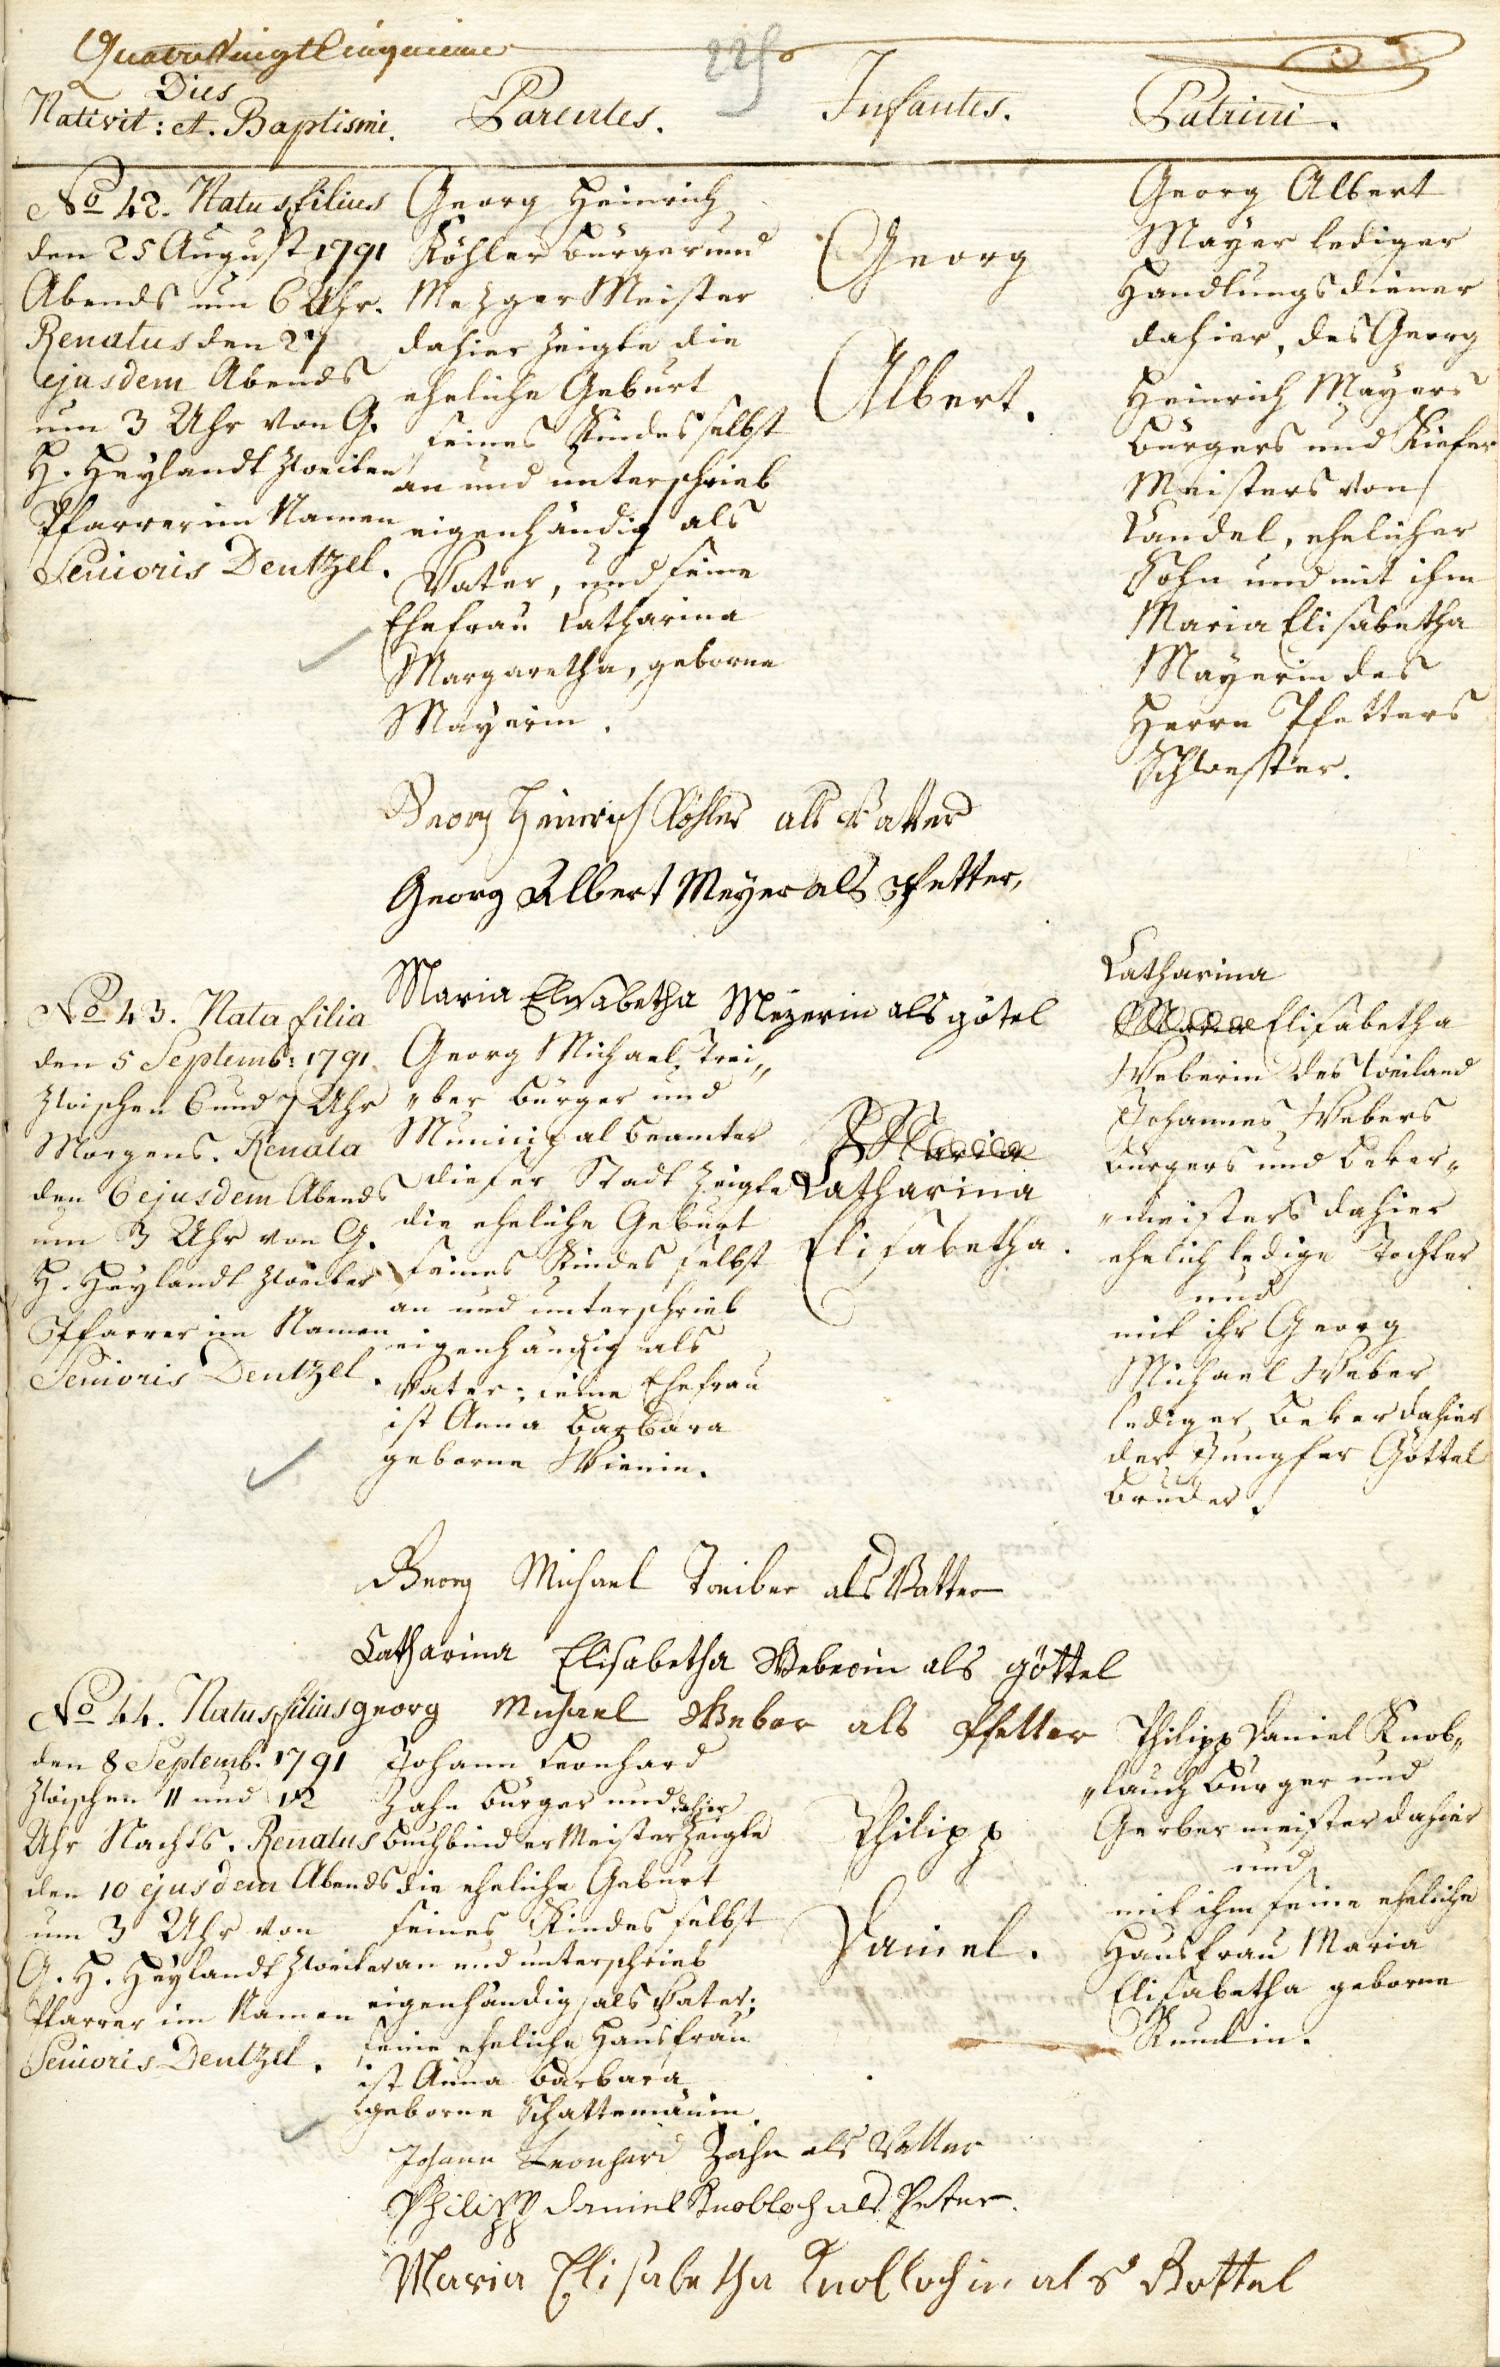 Quatre Vingt Cinquieme
225
Dies
Nativit: et. Baptismi.
Parentes.
Infantes.
Patrini.
No 42. Natus filius
den 25 August 1791
Abends um 6 Uhr.
Renatus den 27
ejusdem Abends
um 3 Uhr von G.
H. Heylandt zweiten
Pfarrer im Namen
Senioris Dentzel.
Georg Heinrich
Köhler bürger und
Mezger Meister
dahier zeigte die
eheliche Geburt
seines Kindes selbst
an und unterschrieb
eigenhändig als
Vater, und seine
Ehefrau Catharina
Margaretha, geborne
Mayerin.
Georg
Albert.
Georg Albert
Mayer lediger
Handlungsdiener
dahier, des Georg
Heinrich Mayers
bürgers und Kiefer
Meisters von
Candel, ehelicher
Sohn und mit ihm
Maria Elisabetha
Mayerin des
Herrn Pfetters
Schwester.
Georg Heinrich Köhler als Vatter
Georg Albert Meyer als Pfetter,
Maria Elisabetha Meyerin als götel
No 43. Nata filia
den 5 Septemb: 1791
zwischen 6 und 7 Uhr
Morgens. Renata
den 6 ejusdem Abends
um 3 Uhr von G.
H. Heylandt zweiter
Pfarrer im Namen
Senioris Dentzel.
Georg Michael Trei„
„ber bürger und
Municipalbeamter
dieser Stadt zeigte
die eheliche Geburt
seines Kindes selbst
an und unterschrieb
eigenhändig als
Vater; seine Ehefrau
ist Anna barbara
geborne
Maria
Catharina
Elisabetha.
Catharina
Maria Elisabetha
Weberin des weiland
Johannes Webers
bürgers und beker„
„meisters dahier
ehelich ledige Tochter
und
mit ihr Georg
Michael Weber
lediger beker dahier
der Jungfer Göttel
bruder.
Georg Michael Treiber als Vatter
Catharina Elisabetha Weberin als göttel
georg Michael Weber als Pfetter
No 44. Natus filius
den 8 Septemb. 1791
zwischen 11 und 12
Uhr Nachts. Renatus
den 10 ejusdem Abends
um 3 Uhr von
G. H. Heylandt zweiter
Pfarrer im Namen
Senioris Dentzel.
Johann Leonhard
Zahn bürger und dahier
buchbinder Meister zeigte
die eheliche Geburt
seines Kindes selbst
an und unterschrieb
eigenhändig als Vater;
seine eheliche Hausfrau
ist Anna barbara
geborne Schattemännin.
Philipp
Daniel.
Philipp Daniel Knob„
„lauch bürger und
Gerber meister dahier
und
mit ihm seine eheliche
Hausfrau Maria
Elisabetha geborne
Johann Leonhard Zahn als Vatter
Philipp Daniel Knobloch als Peter.
Maria Elisabetha Knollochin als Gottel